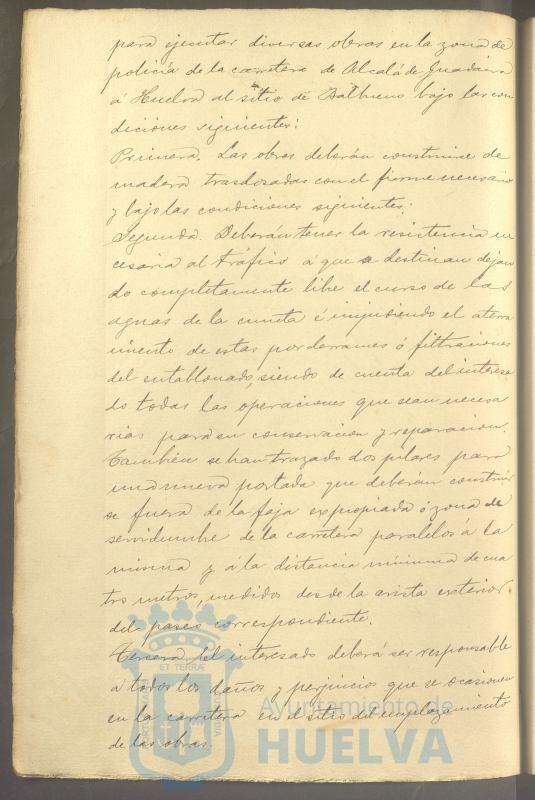 para ejecutar diversas obras en la zona de
policía de la carretera de Alcalá de Guadaira
á Huelva al sitio de bajo las con
diciones siguientes:
Primera. Las obras deberán construirse de
madera trasdosadas con el firme necesario
y bajo las condiciones siguientes:
Segunda. Deberán tener la resistencia ne
cesaria al tráfico á que se destinan dejan
do completamente libre el curso de las
aguas de la cuneta é impidiendo el aterra
miento de estas por derrames ó filtraciones
del entablonado, siendo de cuenta del interesa
do todas las operaciones que sean necesa
rias para su conservacion y reparacion.
Tambien se han trazado dos pilares para
una nueva portada que deberán construir
se fuera de la faja expropiada ó zona de
servidumbre de la carretera paralelos á la
misma y á la distancia mínima de cua
tro metros, medidos desde la arista exterior
del paseo correspondiente.
Tercera. El interesado deberá ser responsable
á todos los daños y perjuicios que se ocasionen
en la carretera en el sitio del emplazamiento
de las obras.
ET TERRÆ
Ayuntamiento de
HUELVA